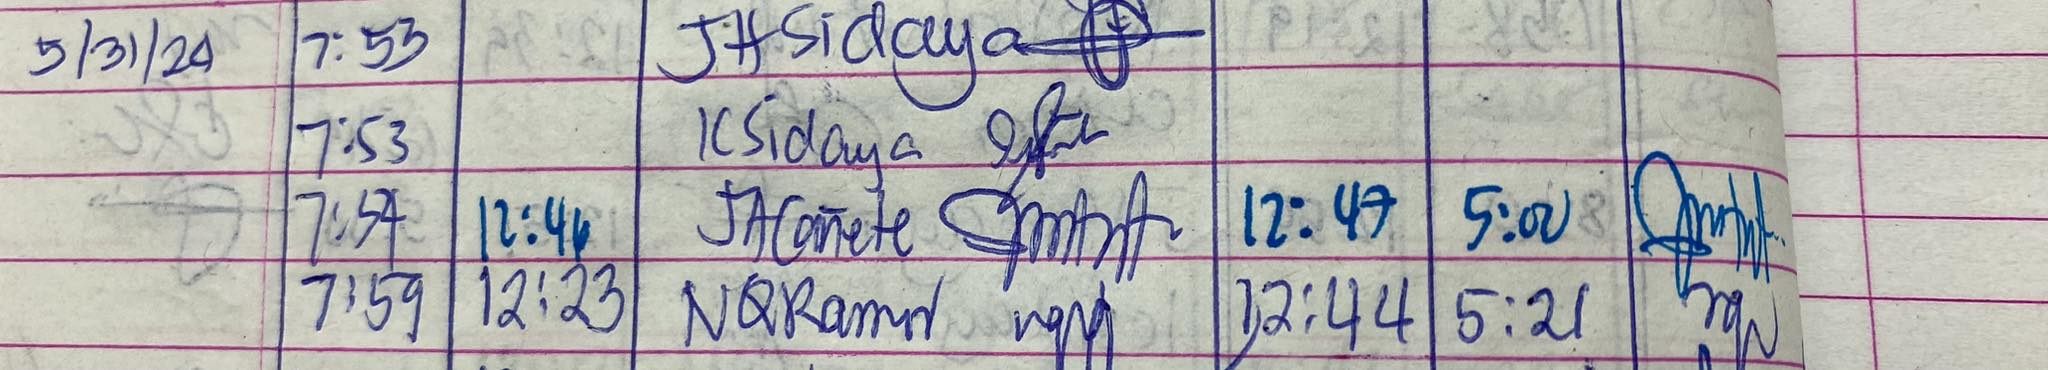 5/31/24 7:53 JHSidaya
7:53 KSidaya
7:54 12:46 JACañete 12:47 5:00
7:59 12:23 12:44 5:21